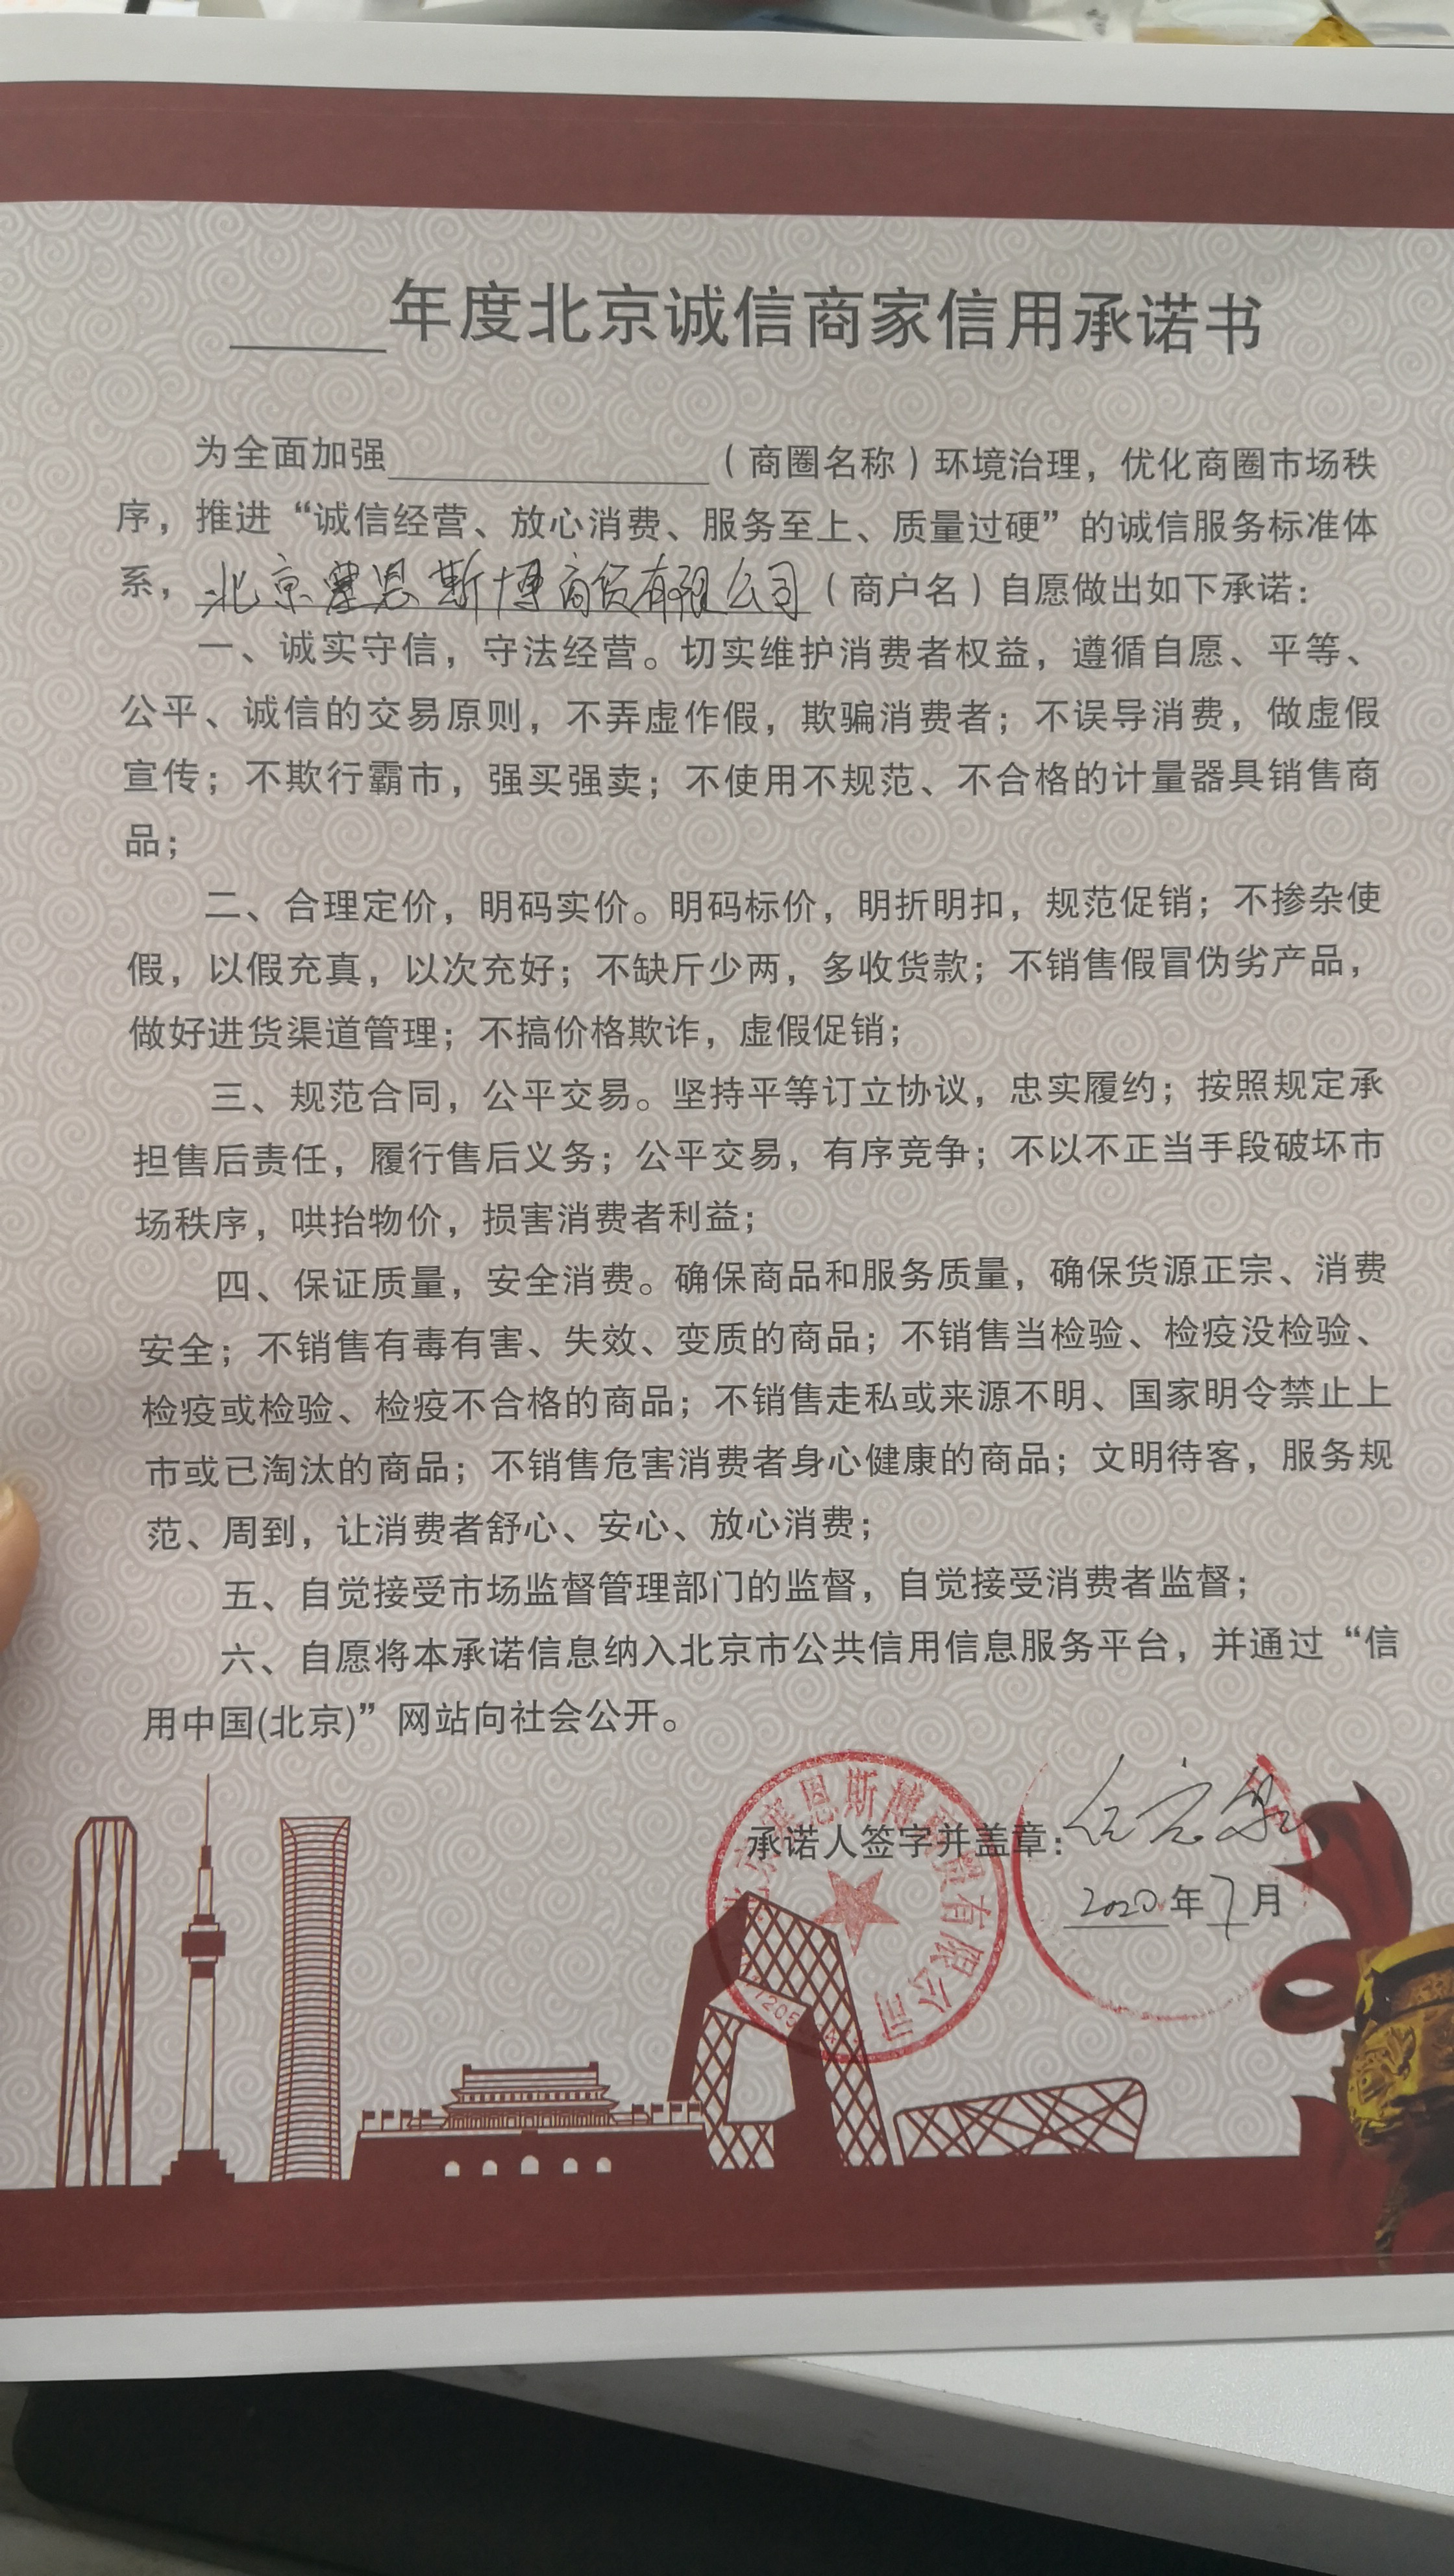 年度北京诚信商家信用承诺书
为全面加强（商圈名称）环境治理，优化商圈市场秩
序，推进“诚信经营、放心消费、服务至上、质量过硬”的诚信服务标准体
系，北京塞恩斯博商贸有限公司（商户名）自愿做出如下承诺：
一、诚实守信，守法经营。切实维护消费者权益，遵循自愿、平等、
公平、诚信的交易原则，不弄虚作假，欺骗消费者；不误导消费，做虚假
宣传；不欺行霸市，强买强卖；不使用不规范、不合格的计量器具销售商
品；
二、合理定价，明码实价。明码标价，明折明扣，规范促销；不掺杂使
假，以假充真，以次充好；不缺斤少两，多收货款；不销售假冒伪劣产品，
做好进货渠道管理；不搞价格欺诈，虚假促销；
三、规范合同，公平交易。坚持平等订立协议，忠实履约；按照规定承
担售后责任，履行售后义务；公平交易，有序竞争；不以不正当手段破坏市
场秩序，哄抬物价，损害消费者利益；
四、保证质量，安全消费。确保商品和服务质量，确保货源正宗、消费
安全；不销售有毒有害、失效、变质的商品；不销售当检验、检疫没检验、
检疫或检验、检疫不合格的商品；不销售走私或来源不明、国家明令禁止上
市或已淘汰的商品；不销售危害消费者身心健康的商品；文明待客，服务规
范、周到，让消费者舒心、安心、放心消费；
五、自觉接受市场监督管理部门的监督，自觉接受消费者监督；
六、自愿将本承诺信息纳入北京市公共信用信息服务平台，并通过“信
用中国(北京)”网站向社会公开。
承诺人签字并盖章：
2020年7月